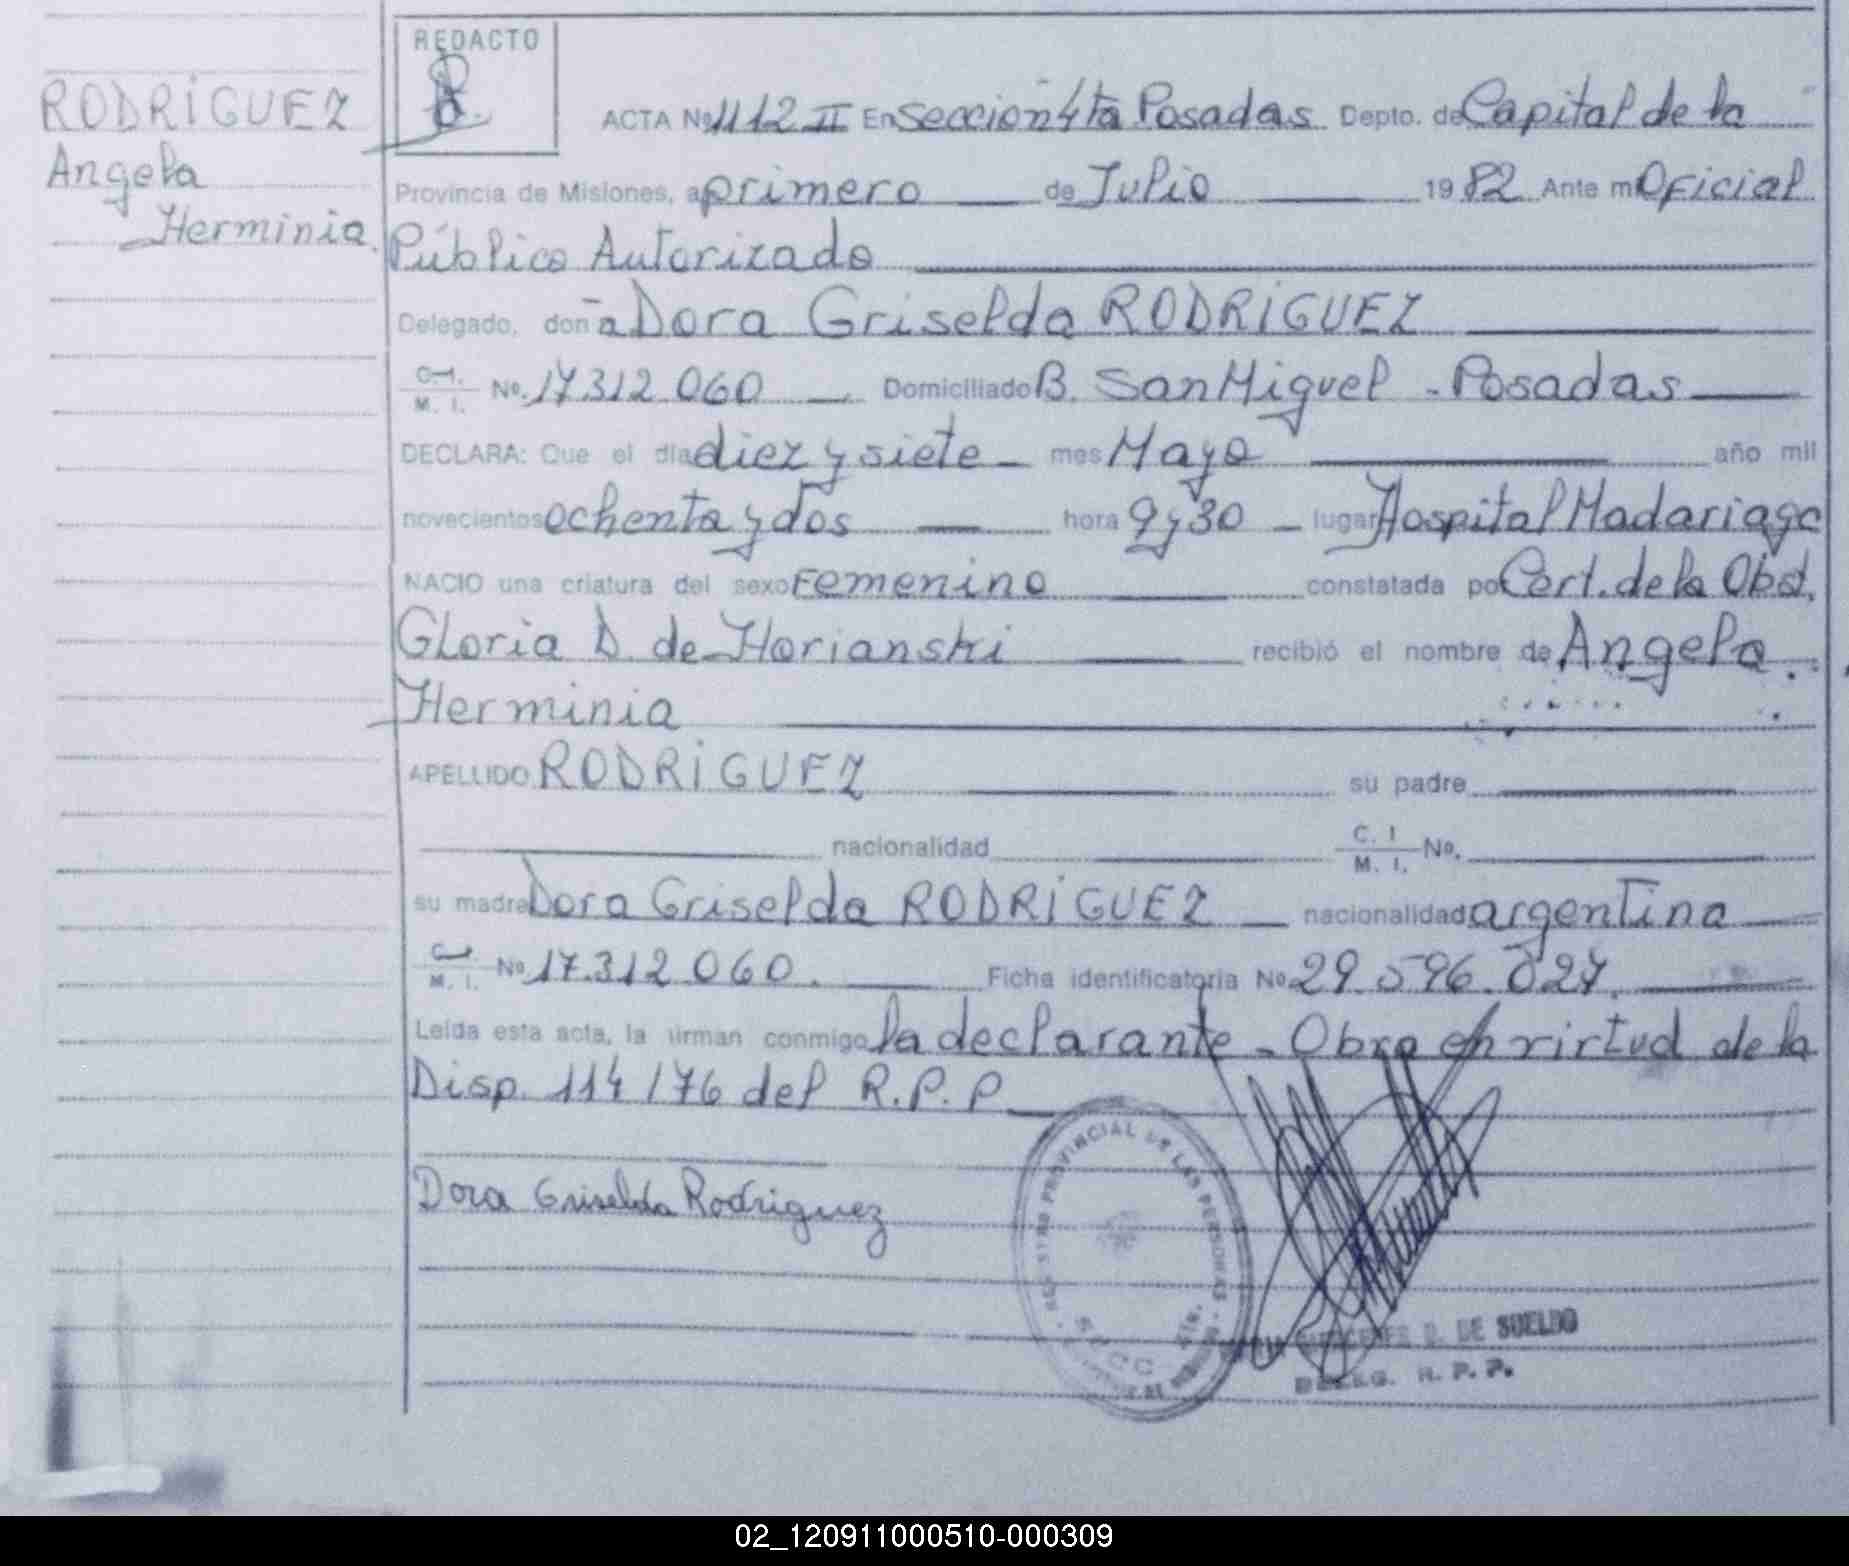 RODRÍGUEZ
Angela
Herminia
REDACTO
ACTA Nº 1112 II En Sección 4ta Posadas Depto. de Capital de la
Provincia de Misiones, a primero de Julio 19 82 Ante mi Oficial
Público Autorizado
Delegado, don a Dora Griselda RODRÍGUEZ
C.I. M. I. Nº. 17.312.060 Domiciliado B. San Miguel - Posadas
DECLARA: Que el día diez y siete mes Mayo año mil
novecientos ochenta y dos hora 9 y 30 lugar Hospital Madariaga
NACIO una criatura del sexo Femenino constatada por Cert. de la Obst.
Gloria D. de Horianski recibió el nombre de Angela
Herminia
APELLIDO RODRÍGUEZ su padre
nacionalidad C. I M. I. Nº.
su madre Dora Griselda RODRÍGUEZ nacionalidad argentina
M. I. Nº 17.312.060. Ficha identificatoria Nº 29.596.027.
Leída esta acta, la firman conmigo la declarante - Obra en virtud de la
Disp. 114/76 del R.P.P
Dora Griselda Rodriguez
REGISTRO PROVINCIAL DE LAS PERSONAS
D. DE SUELDO
DELEG. R. P. P.
02_120911000510-000309